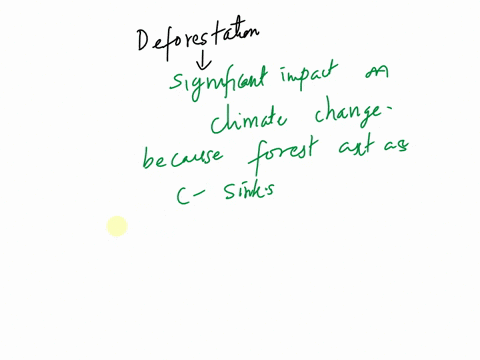 Deforestation
↓
significant impact on
climate change.
because forest act as
C- sinks